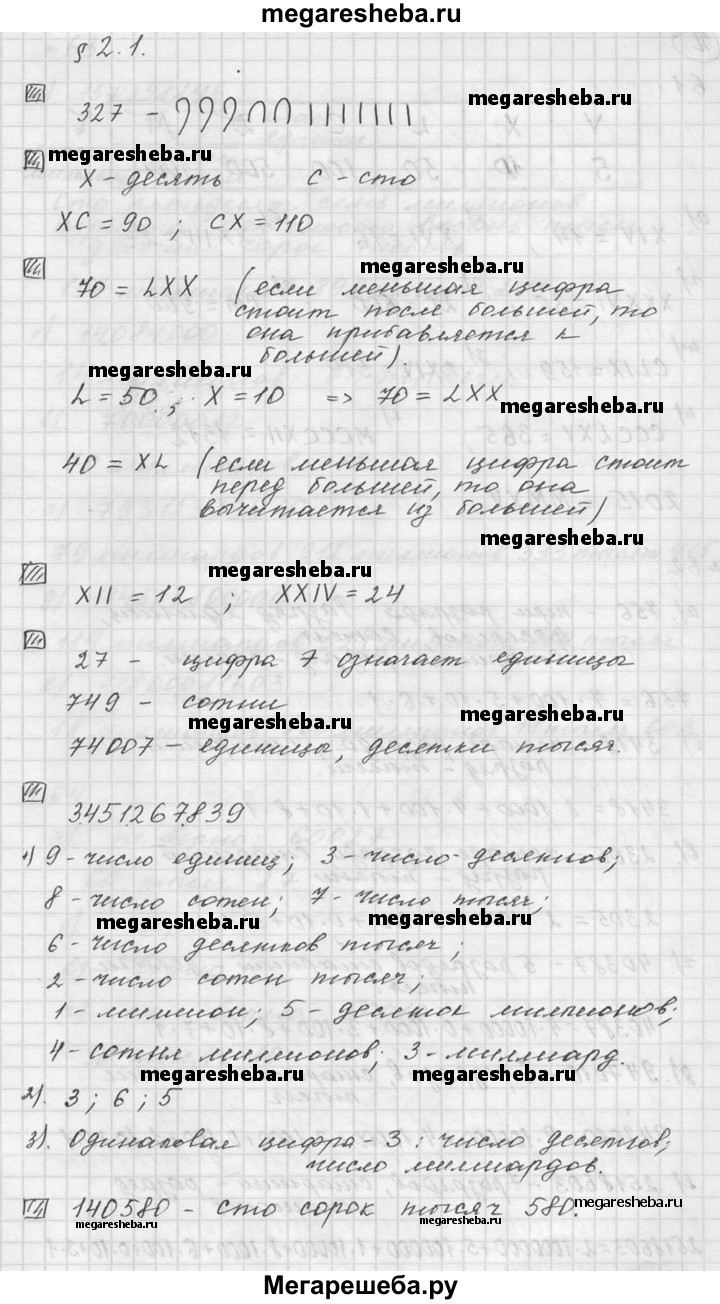 megaresheba.ru
§ 2.1.
327 -
megaresheba.ru
megaresheba.ru
X - десять C - сто
XC = 90 ; CX = 110
megaresheba.ru
70 = LXX (если меньшая цифра
стоит после большей, то
она прибавляется к
большей).
megaresheba.ru
L = 50 ; X = 10 => 70 = LXX
megaresheba.ru
40 = XL (если меньшая цифра стоит
перед большей, то она
вычитается из большей)
megaresheba.ru
megaresheba.ru
XII = 12 ; XXIV = 24
27 - цифра 7 означает единицы
749 - сотни
megaresheba.ru megaresheba.ru
74007 - единицы, десятки тысяч.
3451267839
1) 9 - число единиц; 3 - число десятков;
8 - число сотен; 7 - число тысяч;
megaresheba.ru megaresheba.ru
6 - число десятков тысяч ;
2 - число сотен тысяч ;
1 - миллион; 5 - десяток миллионов;
4 - сотня миллионов; 3 - миллиард.
megaresheba.ru megaresheba.ru
2). 3 ; 6 ; 5
3). Одинаковая цифра - 3 : число десятков;
число миллиардов.
140580 - сто сорок тысяч 580.
megaresheba.ru megaresheba.ru megaresheba.ru
Мегарешеба.ру